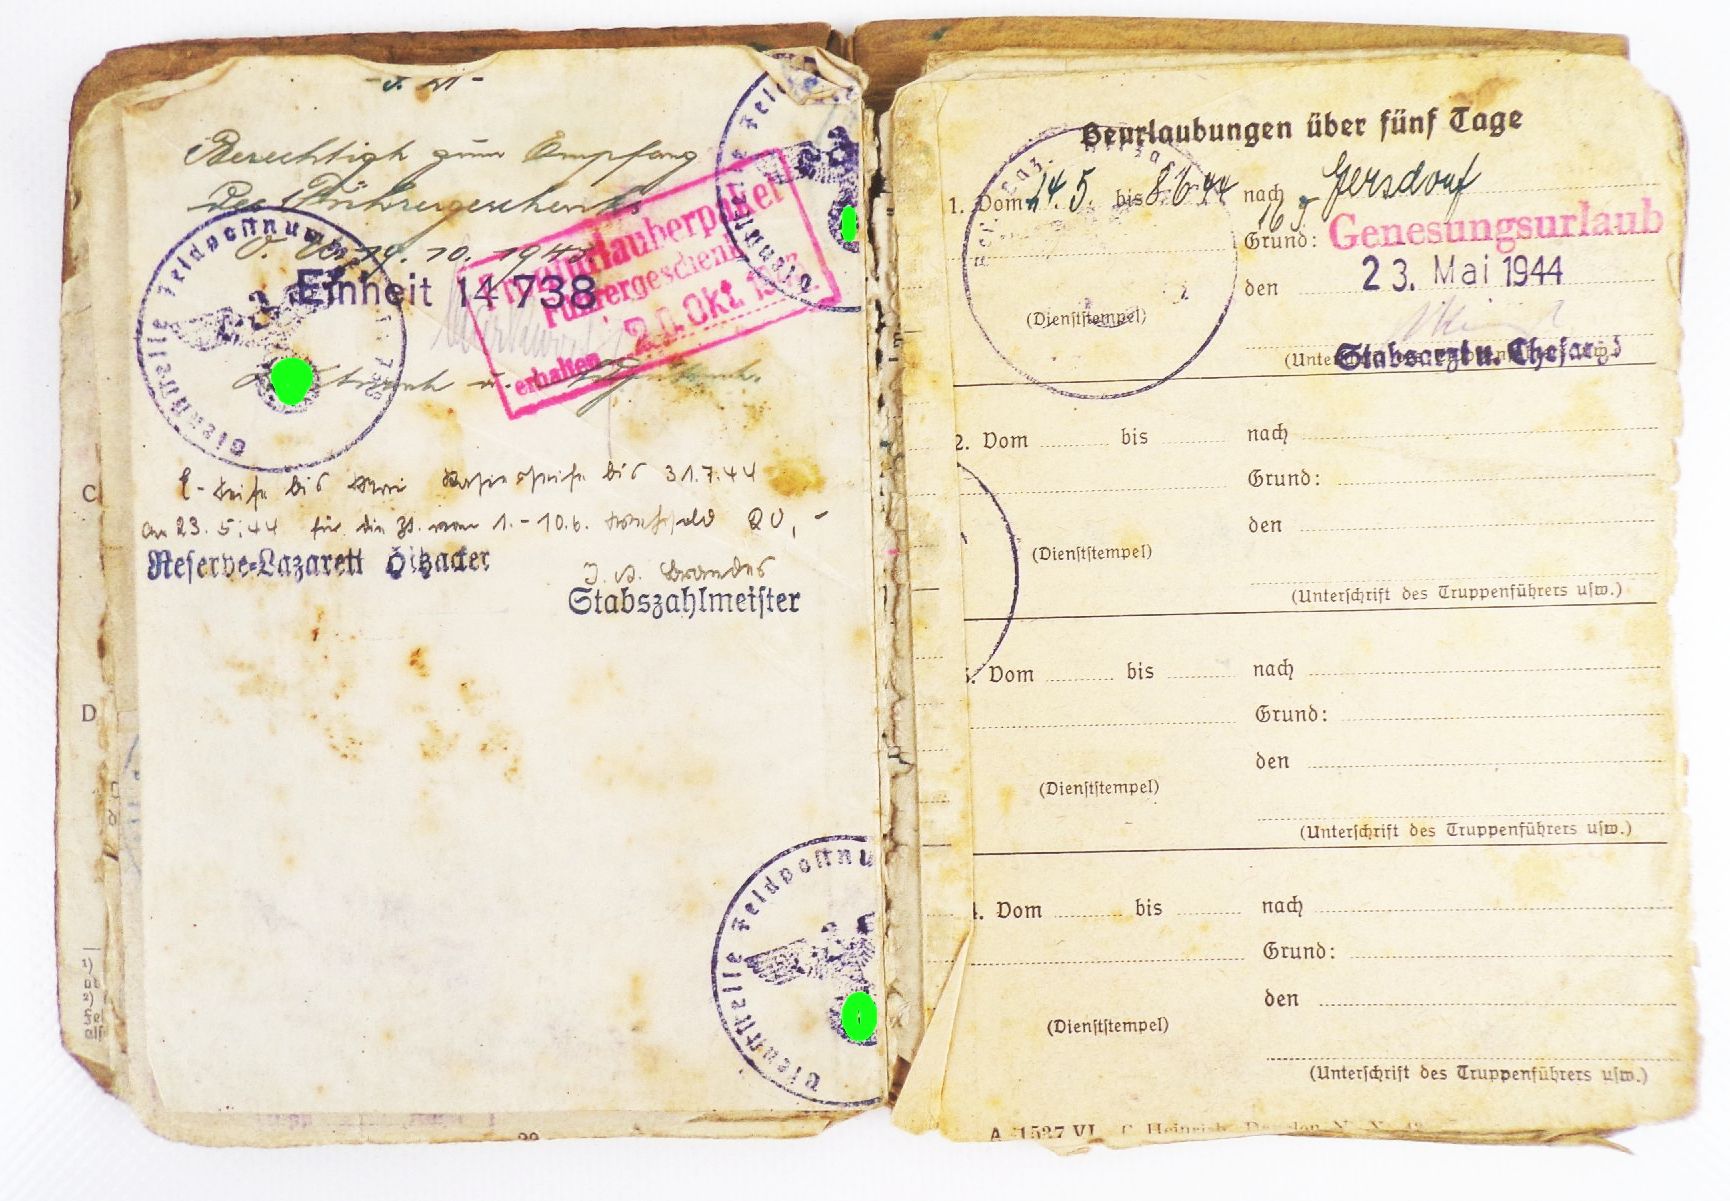 Berechtigt zum Empfang
des Führergeschenks
14.10.1943.
Dienststelle Feldpostnummer
Einheit 14738
Urlauberpaket
Führergeschenk
erhalten 20. Okt. 1943
bis 31.7.44
am 23.5.44 für die Zt. vom 1.-10.6.
Reserve-Lazarett Hitzacker
Brandes
Stabszahlmeister
Dienststelle Feldpostnu
Dienststelle Feldpostnu
C
D
1)
2)
Beurlaubungen über fünf Tage
1. Vom 24.5. bis 8.6.44 nach Gersdorf
Grund: Genesungsurlaub
den 23. Mai 1944
(Dienststempel)
Stabsarzt u. Chefarzt
2. Vom bis nach
Grund:
den
(Dienststempel)
(Unterschrift des Truppenführers usw.)
3. Vom bis nach
Grund:
den
(Dienststempel)
(Unterschrift des Truppenführers usw.)
4. Vom bis nach
Grund:
den
(Dienststempel)
(Unterschrift des Truppenführers usw.)
A 1527 VI C. Heinrich, Dresden N.